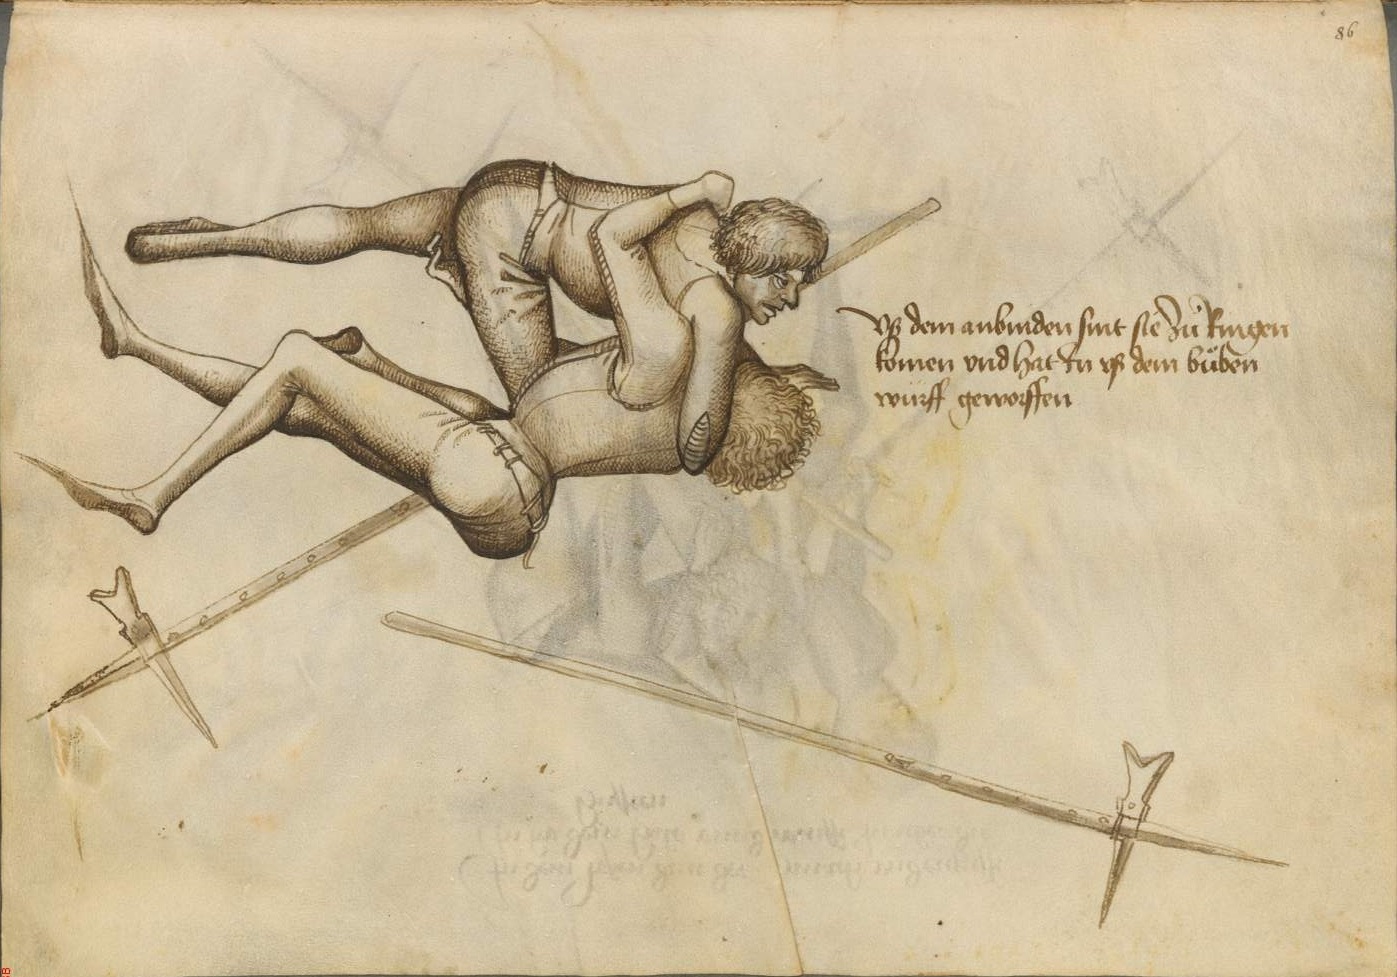 86
Vß dem anbinden sint sie zů Ringen
komen vnd hat in vß dem bůben
wurff geworffen